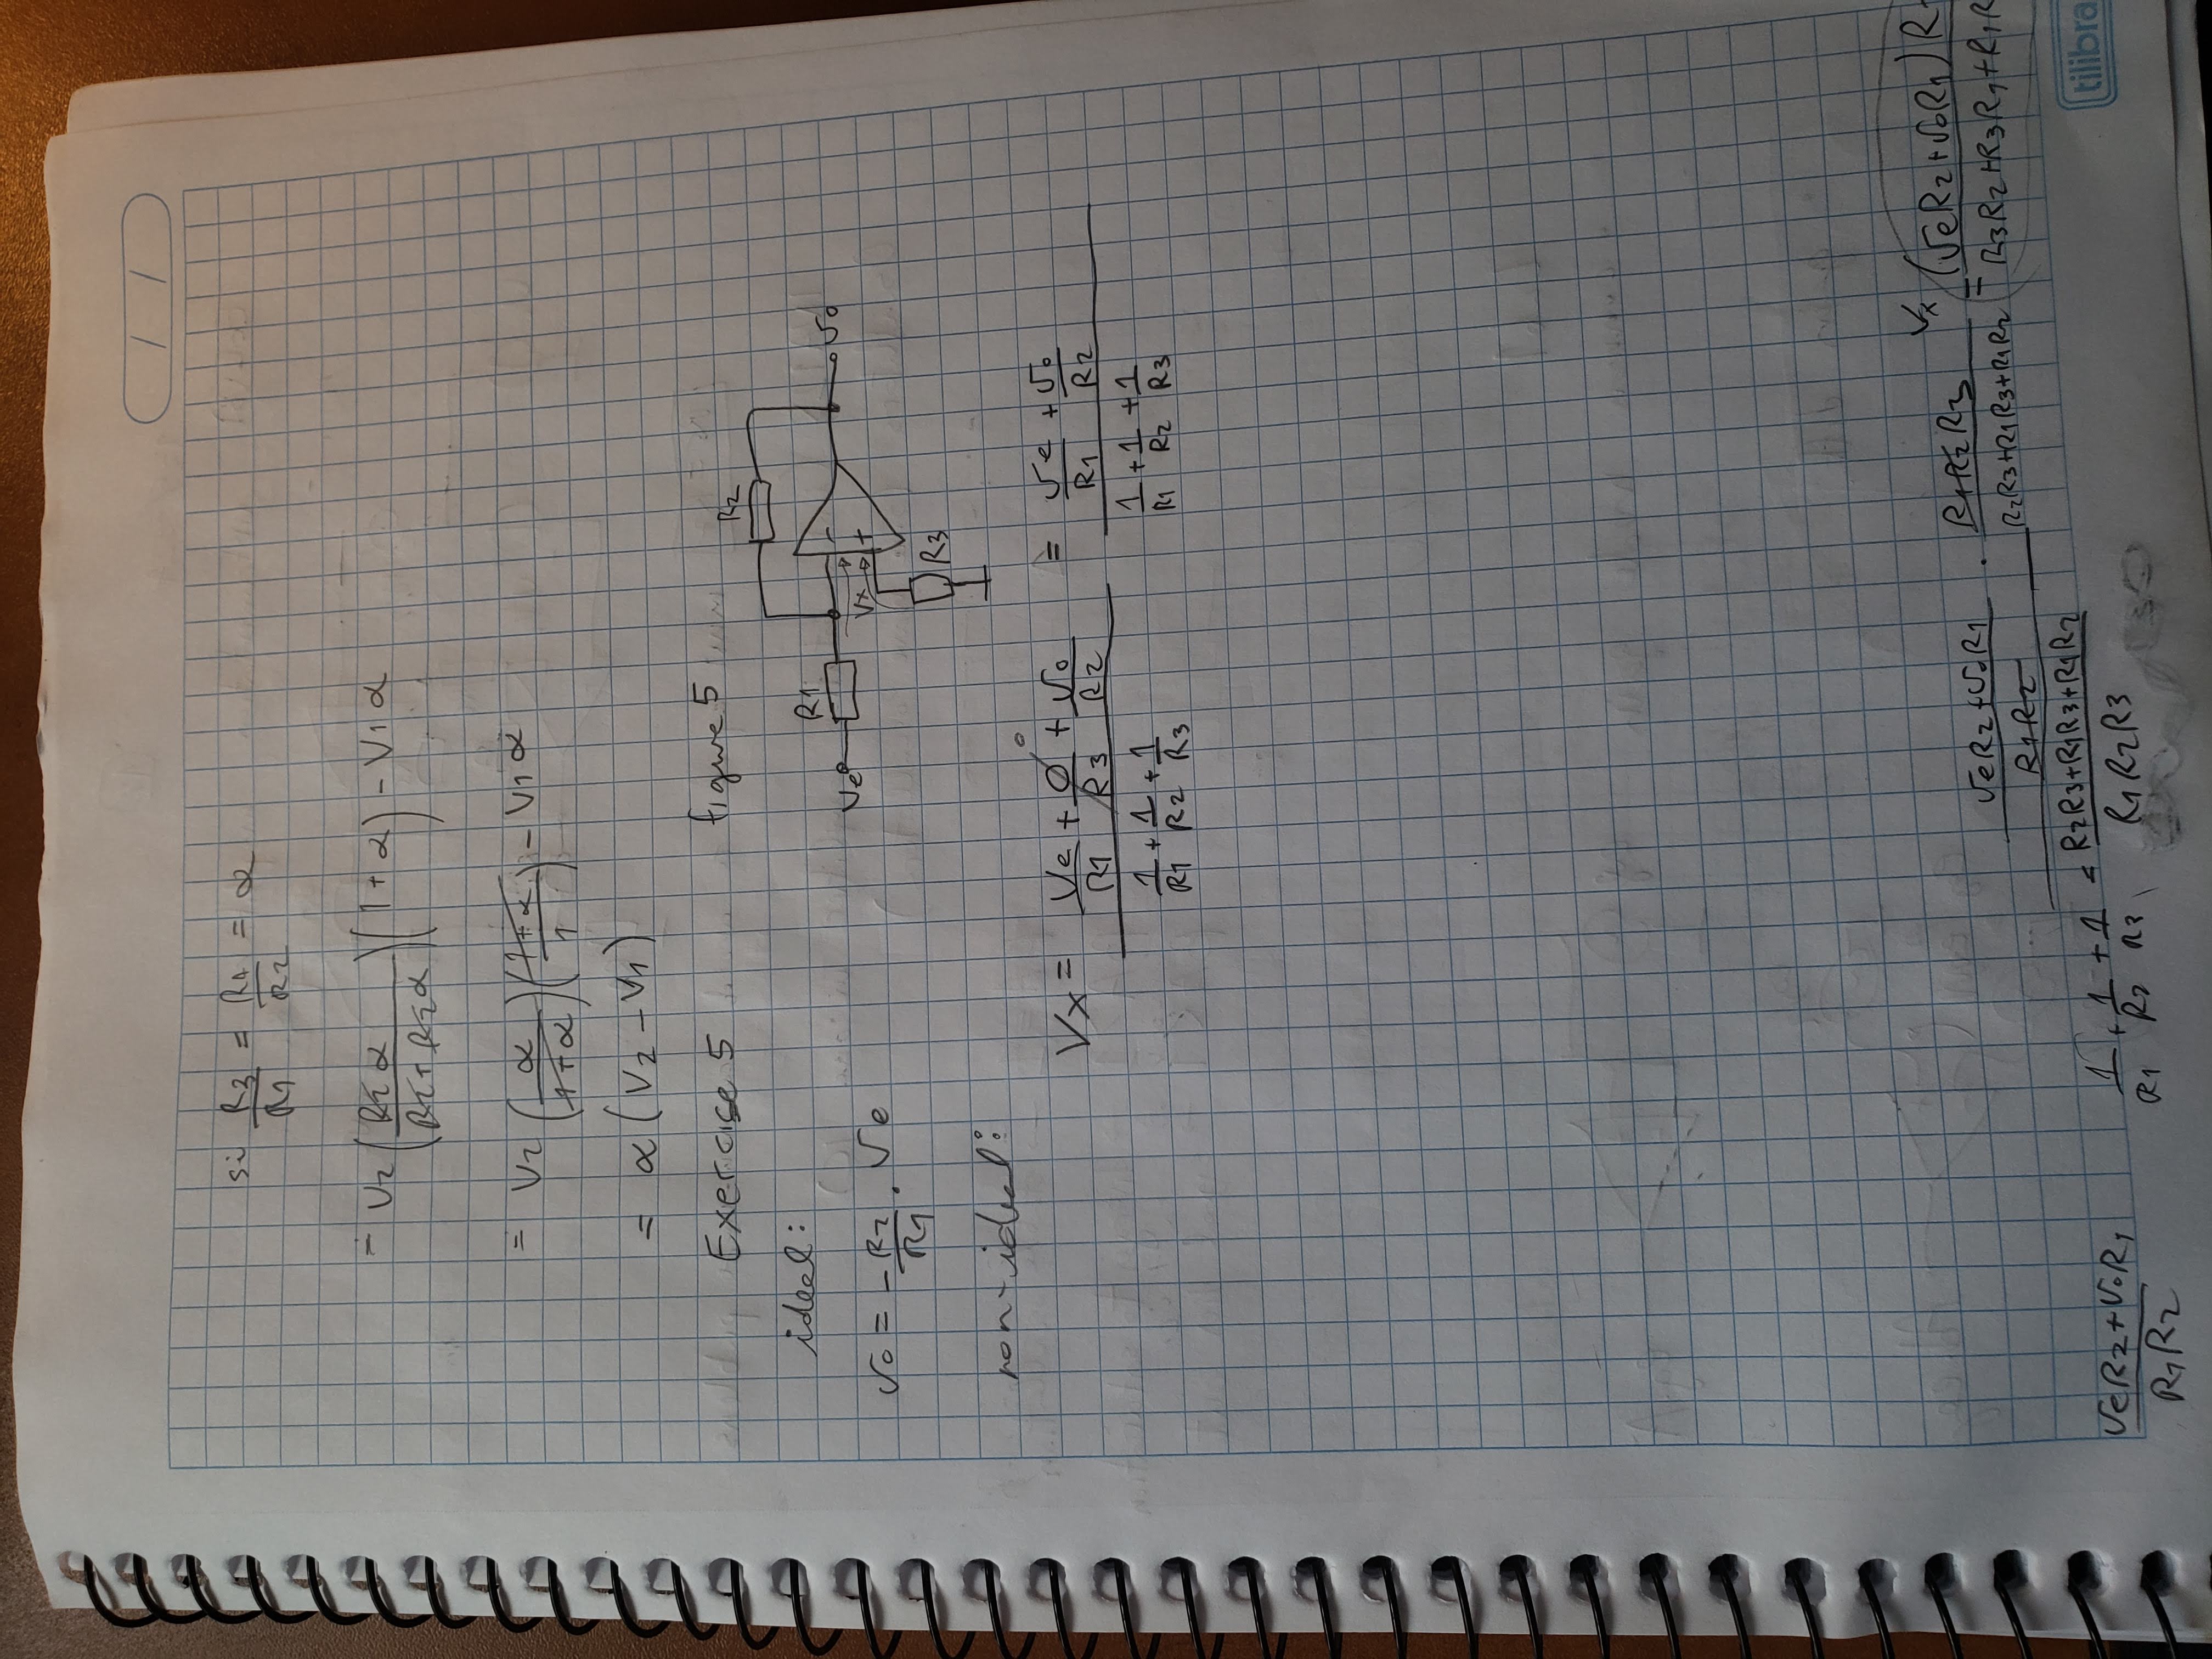 / /
si R3/R1 = R4/R2 = α
= V2 (R2 α / R2 + R2 α)(1 + α) - V1 α
= V2 (α / 1+α)(1+α / 1) - V1 α
= α (V2 - V1)
Exercise 5
figure 5
R2
ideal:
R1
Ve
Vo
Vx
-
+
R3
Vo = -R2/R1 . Ve
non-ideal:
Vx = (Ve/R1 + 0/R3 + Vo/R2) / (1/R1 + 1/R2 + 1/R3) = (Ve/R1 + Vo/R2) / (1/R1 + 1/R2 + 1/R3)
0
(VeR2 + VoR1 / R1R2) . (R1R2R3 / R2R3+R1R3+R1R2)
Vx = (VeR2+VoR1)R / R3R2+R3R1+R1R
R2R3+R1R3+R1R2 / R1R2R3
1/R1 + 1/R2 + 1/R3 =
VeR2+VoR1 / R1R2
tilibra